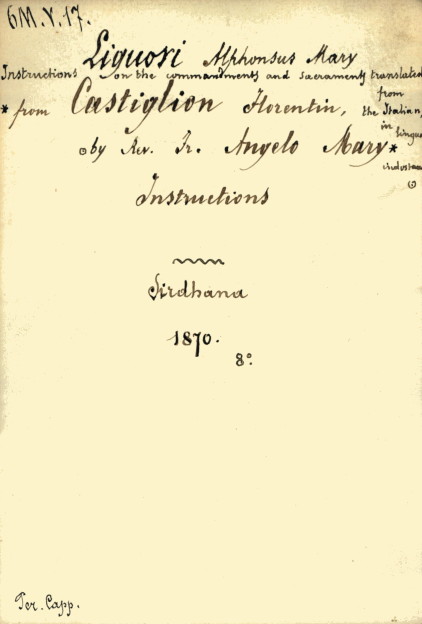 6M.V.17.
Liguori Alphonsus Mary
Instructions on the commandments and sacraments translated
from
* from Castiglion Florentin, the Italian,
in lingua
by Rev. Fr. Angelo Mary*
indostana
Instructions
Sirdhana
1870.
8°.
Ter. Capp.